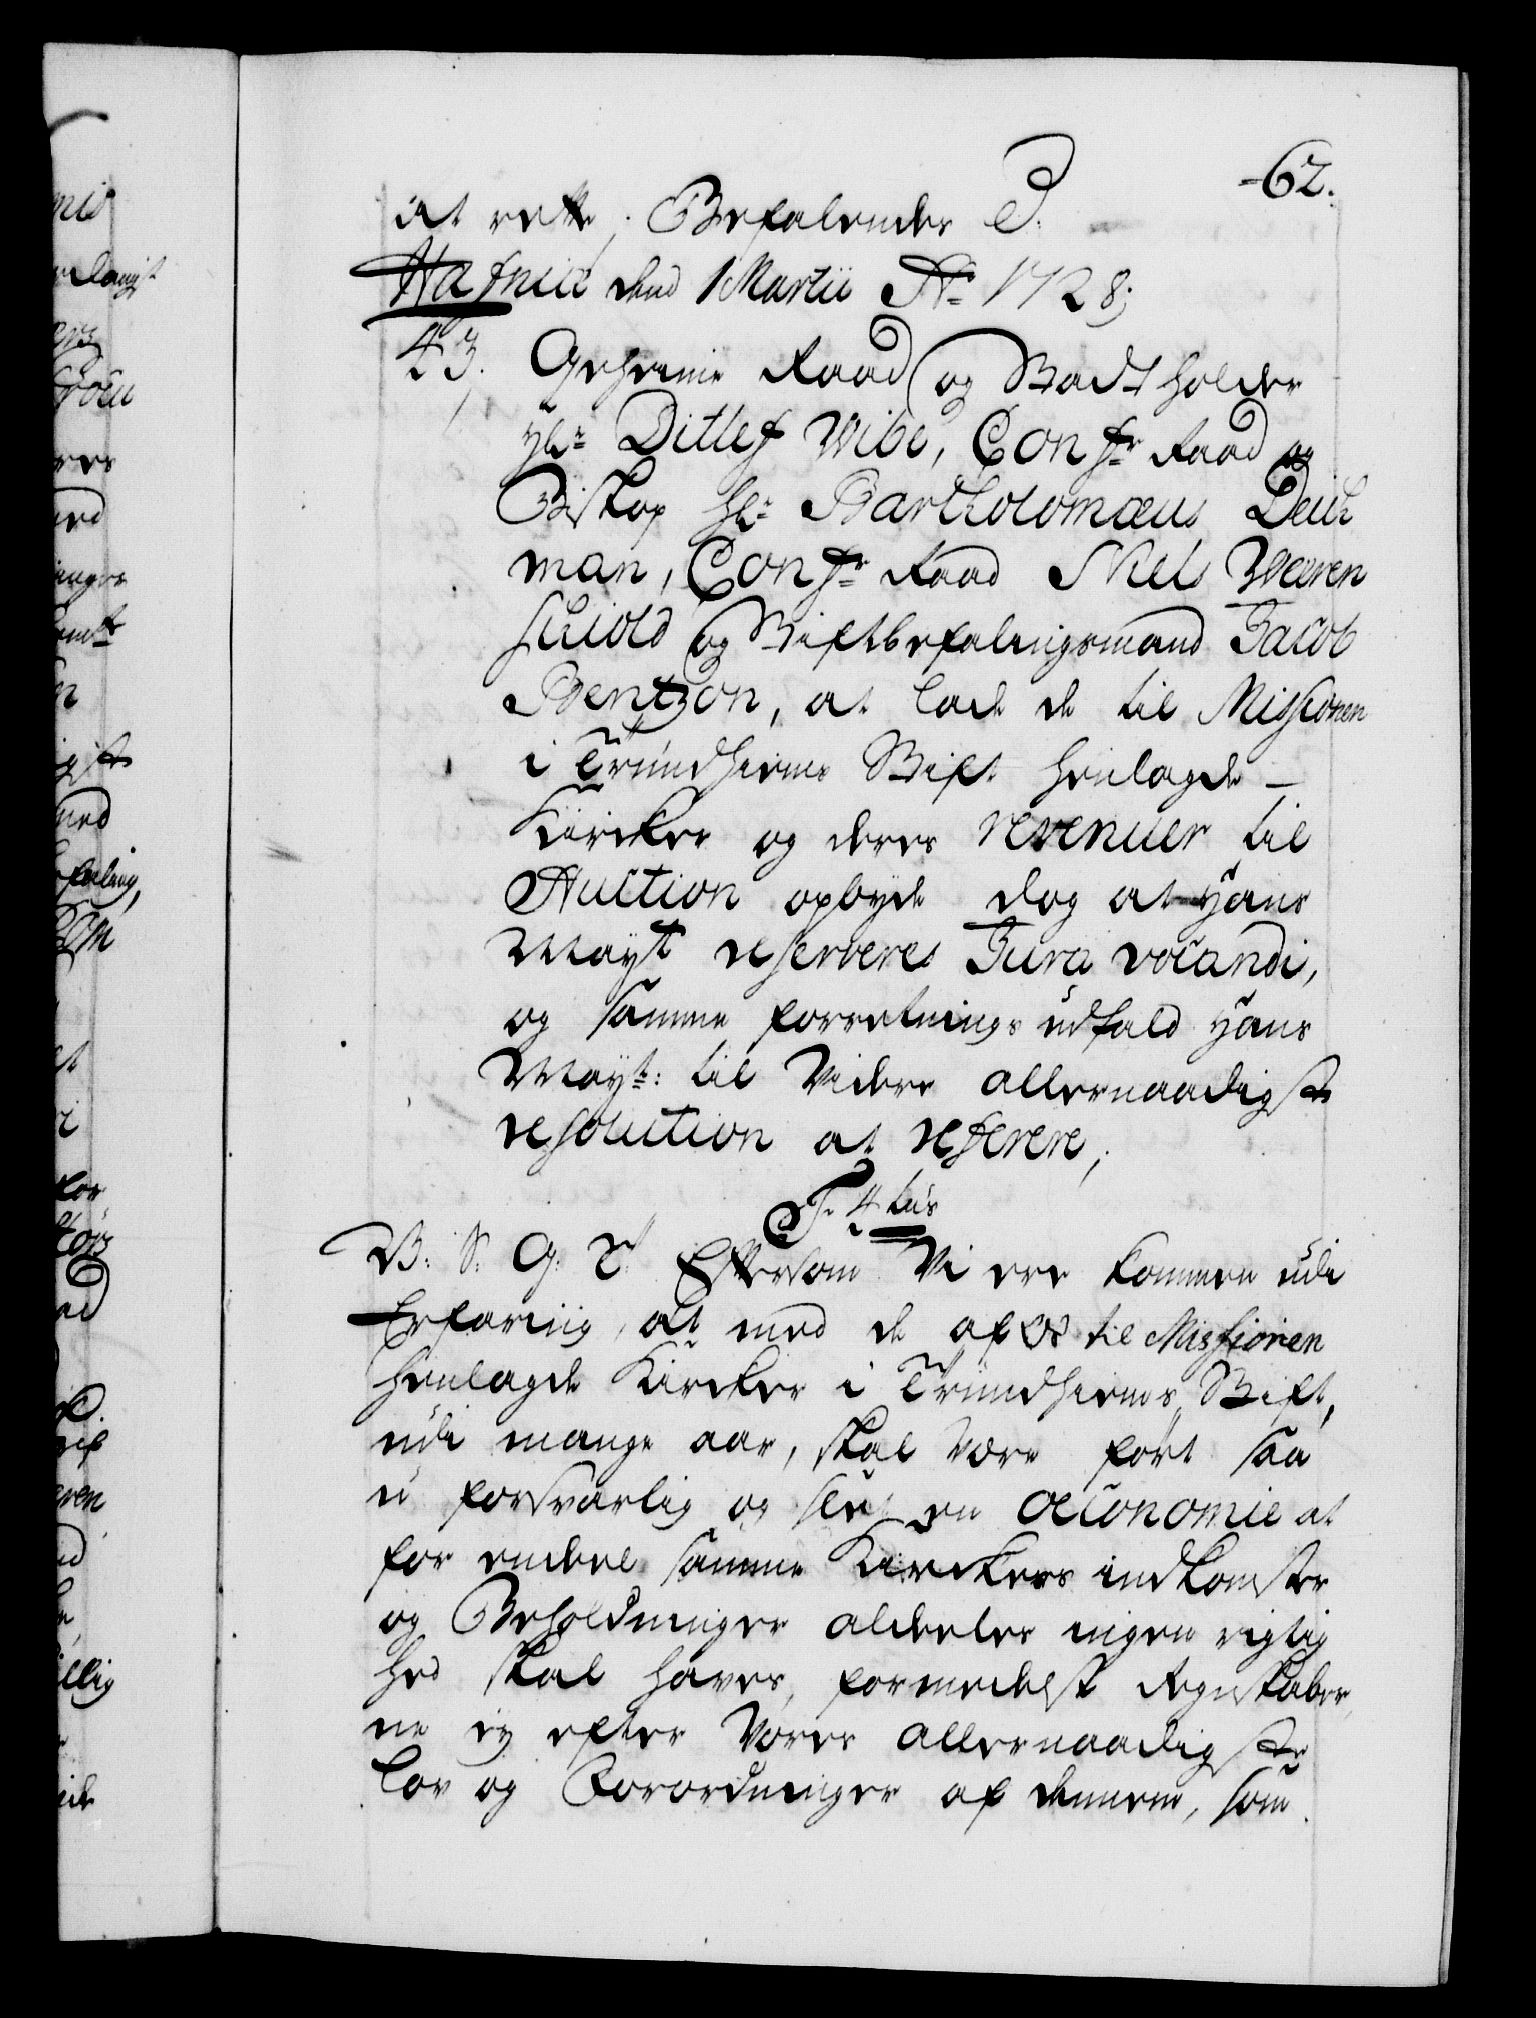 62.
at rette; Befalendes P.
Hafniæ dend 1 Martii Ao 1728;
43. Geheime Raad og Stadtholder
Hr: Ditlef Wibe, Confr. Raad og
Biskop Hr: Bartholomæus Deich
man, Confr. Raad Niels Weeren
schiold og Stiftbefalingsmand Jacob
Bentzon, at lade de til Missionen
i Trundhiems Stift henlagde
Kircker og deres revenuer til
Auction opbyde dog at Hans
Mayt reserveres Jura vocandi,
og samme forretnings udfald Hans
Mayt: til Videre allernaadigste
resolution at referere;
F. 4 tus
V. S. G. T. Eftersom Vi ere kommen udi
Erfaring, at med de af Os til Missionen
henlagde Kircker i Trundhiems Stift,
udi mange aar, skal væreført saa
u forsvarlig og slet en oeconomie at
for endeel samme Kirckers indkomster
og Beholdninger aldeeles ingen rigtig
hed skal haves, formedelst Regnskaber
ne ey efter Vores allernaadigste
Lov og Forordninger af dennem, som